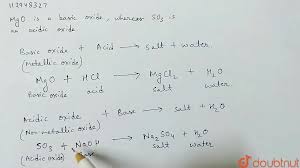 112948327
MgO is a basic oxide, whereas SO3 is
an acidic oxide
Basic oxide + Acid → salt + water.
(Metallic oxide)
MgO + HCl → MgCl2 + H2O
Basic oxide Acid salt water
Acidic oxide + Base → salt + water
(Non-metallic oxide)
SO3 + NaOH → Na2SO4 + H2O
(Acidic oxide) Base salt water.
doubtnut